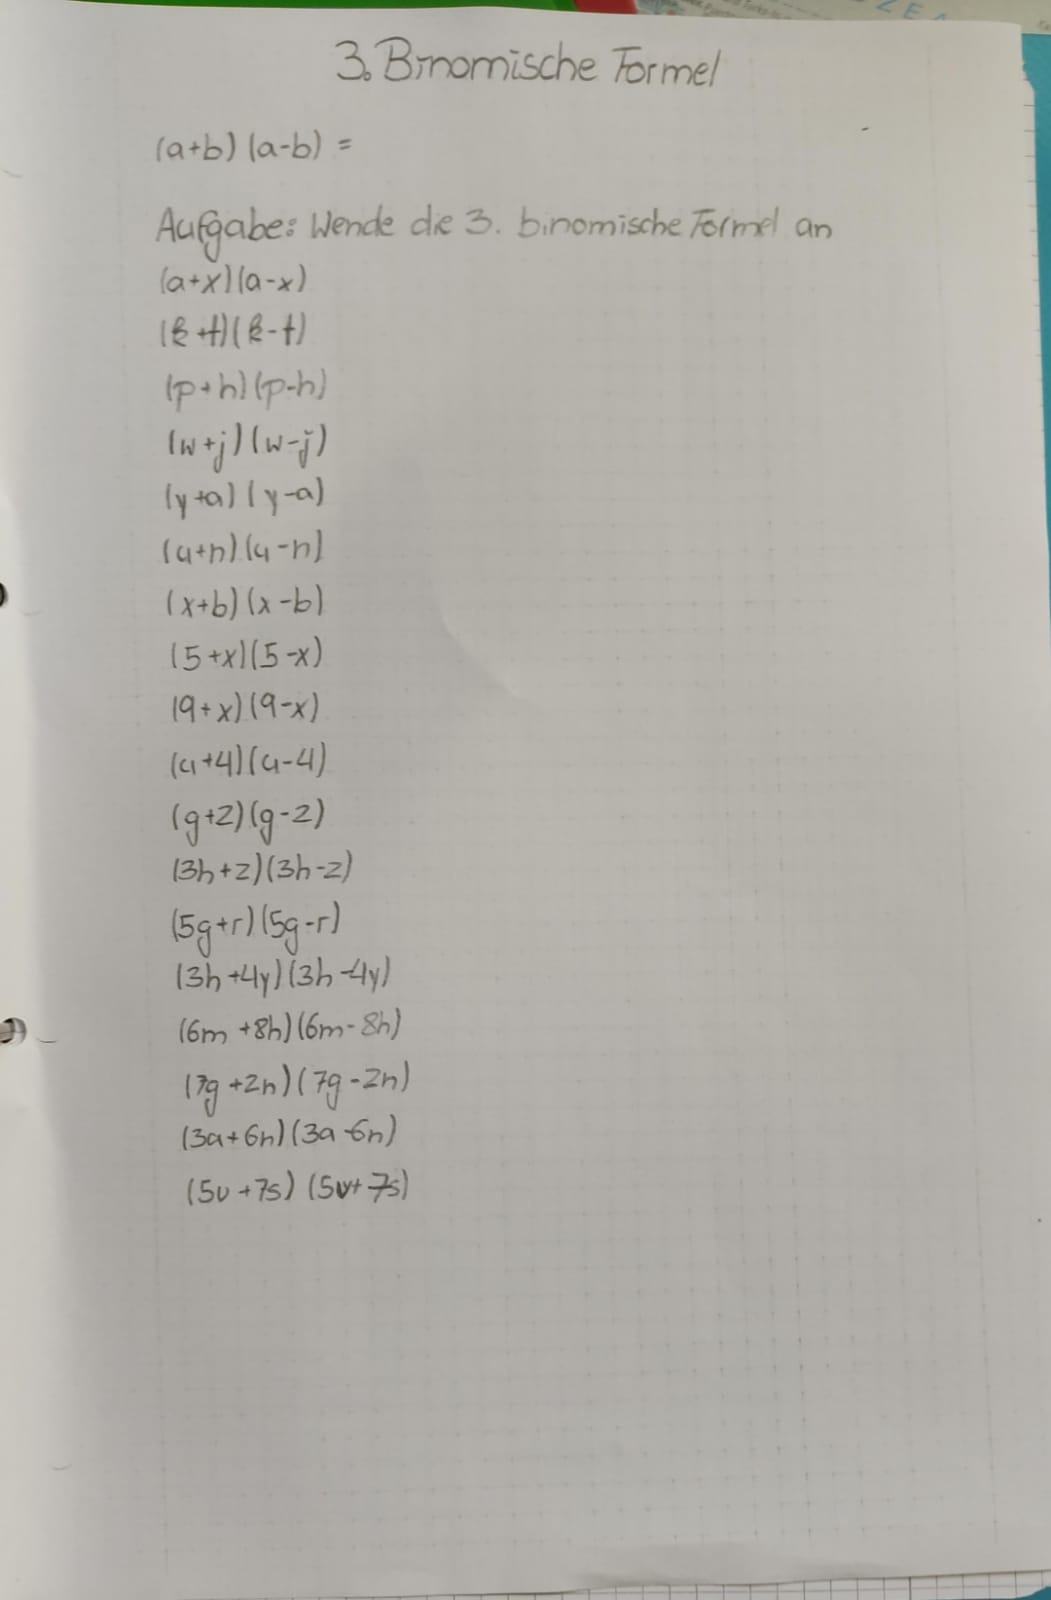 3. Binomische Formel
(a+b) (a-b) =
Aufgabe: Wende die 3. binomische Formel an
(a+x)(a-x)
(k+t)(k-t)
(p+h)(p-h)
(w+j)(w-j)
(y+a)(y-a)
(u+n)(u-n)
(x+b)(x-b)
(5+x)(5-x)
(9+x)(9-x)
(u+4)(u-4)
(g+z)(g-z)
(3h+z)(3h-z)
(5g+r)(5g-r)
(3h+4y)(3h-4y)
(6m+8h)(6m-8h)
(7g+2n)(7g-2n)
(3a+6n)(3a-6n)
(5v+7s) (5v+7s)